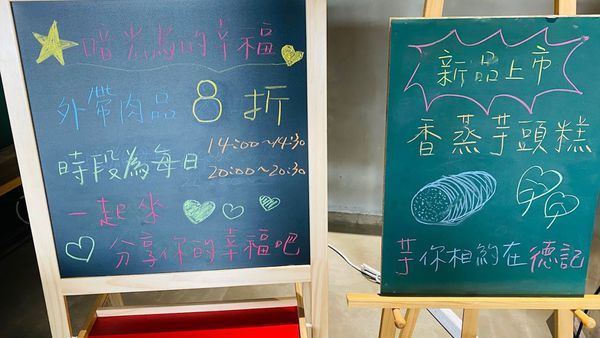 暗光鳥的幸福
外帶肉品 8 折
時段為每日 14:00~14:30
20:00~20:30
一起來
分享你的幸福吧
新品上市
香蒸芋頭糕
芋你相約在德記